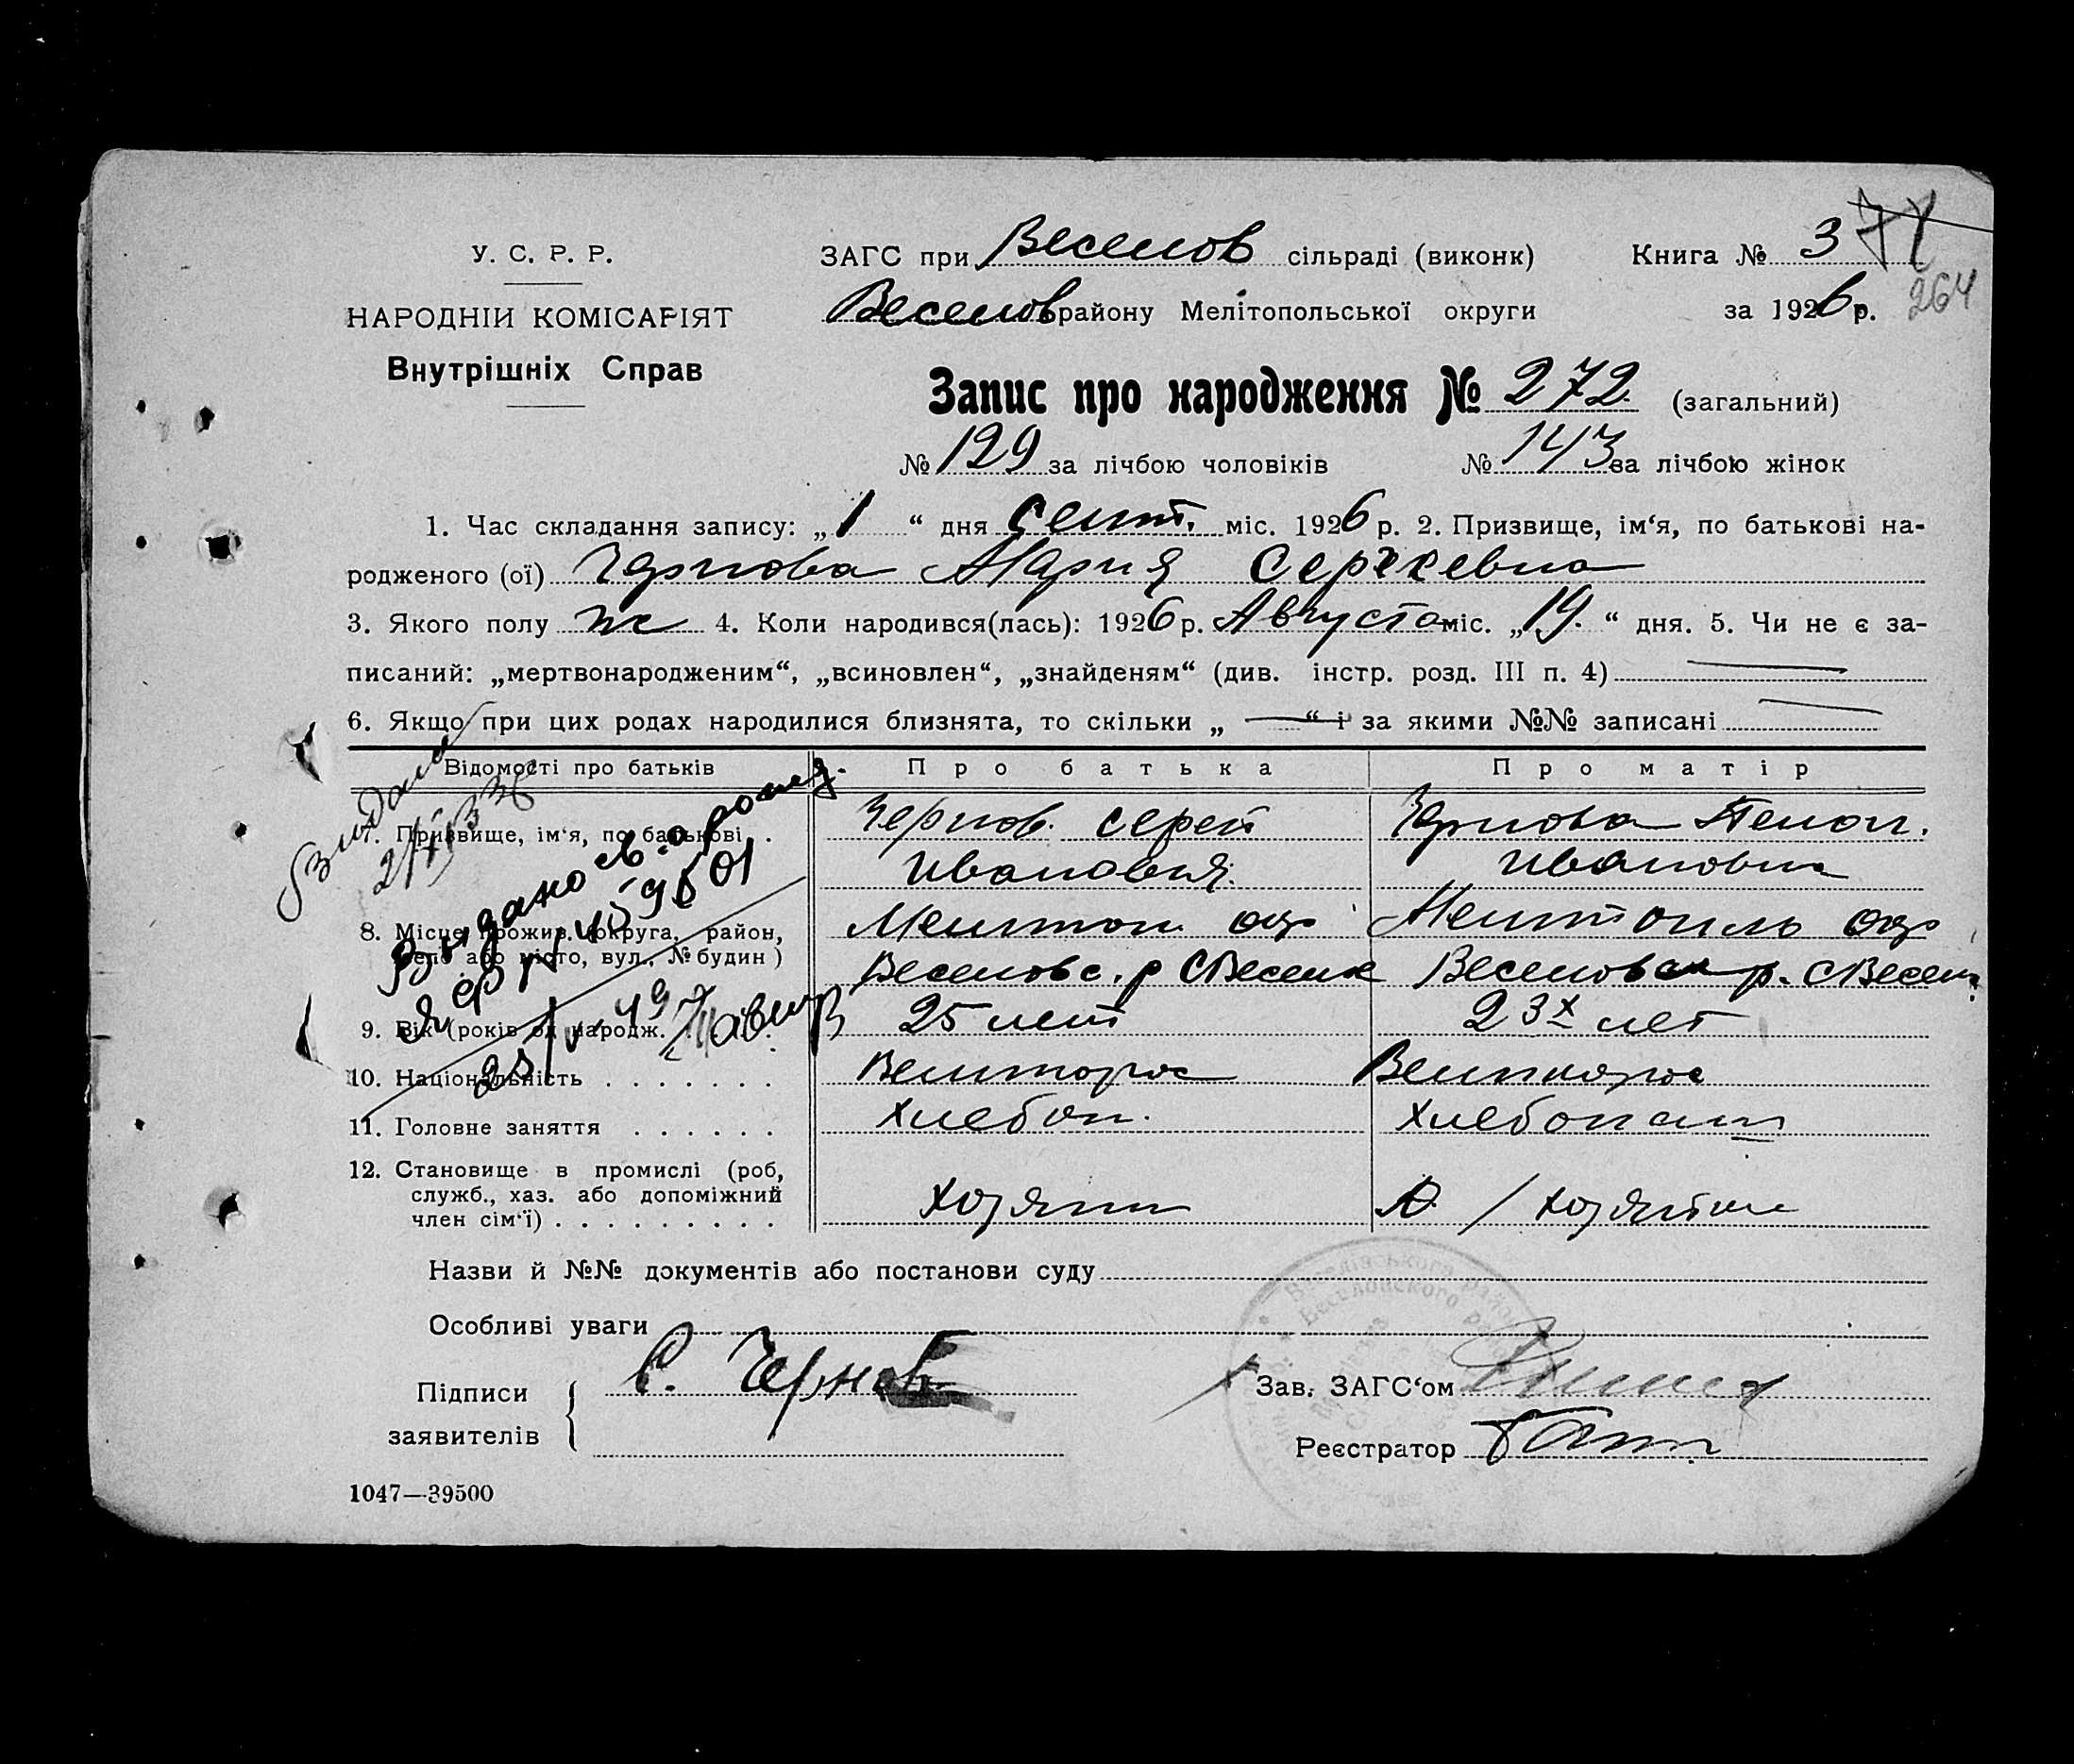 У. С. Р. Р.
НАРОДНІЙ КОМІСАРІЯТ
Внутрішніх Справ
ЗАГС при Веселов сільраді (виконк) Книга № 3
264
Веселов району Мелітопольської округи за 1926 р.
Запис про народження № 272 (загальний)
№ 129 за лічбою чоловіків № 143 за лічбою жінок
1. Час складання запису: „1“ дня Сент. міс. 1926 р. 2. Призвище, ім‘я, по батькові на-
родженого (ої) Чернова Мария Сергеевна
3. Якого полу ж 4. Коли народився(лась): 1926 р. Августа міс. „19.“ дня. 5. Чи не є за-
писаний: „мертвонародженим“, „всиновлен“, „знайденям“ (див. інстр. розд. III п. 4)
6. Якщо при цих родах народилися близнята, то скільки „ — “ і за якими №№ записані
Відомості про батьків Про батька Про матір
7. Призвище, ім‘я, по батькові . . Чернов. Сергей Чернова Пелаг.
Иванович. Ивановна
8. Місце прожив. (округа, район, Мелитоп. окр Мелитополь окр
село або місто, вул., № будин) Веселовс. р С Весел Веселовск р. С Весел
9. Вік (років од народж. 25 лет 23х лет
10. Національність . . . . . . . Великорос Великорос
11. Головне заняття . . . . . . Хлебоп. Хлебопаш
12. Становище в промислі (роб,
служб., хаз. або допоміжний Хозяин Хозяйка
член сім‘ї) . . . . . . . . .
Видано
Назви й №№ документів або постанови суду
Особливі уваги
Підписи С. Чернов Зав. ЗАГС‘ом
заявителів Реєстратор
1047—39500